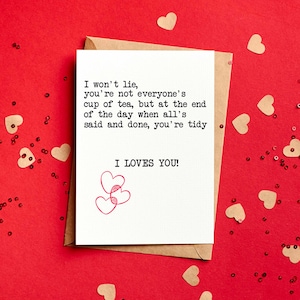 I won't lie,
you're not everyone's
cup of tea, but at the end
of the day when all's
said and done, you're tidy
I LOVES YOU!